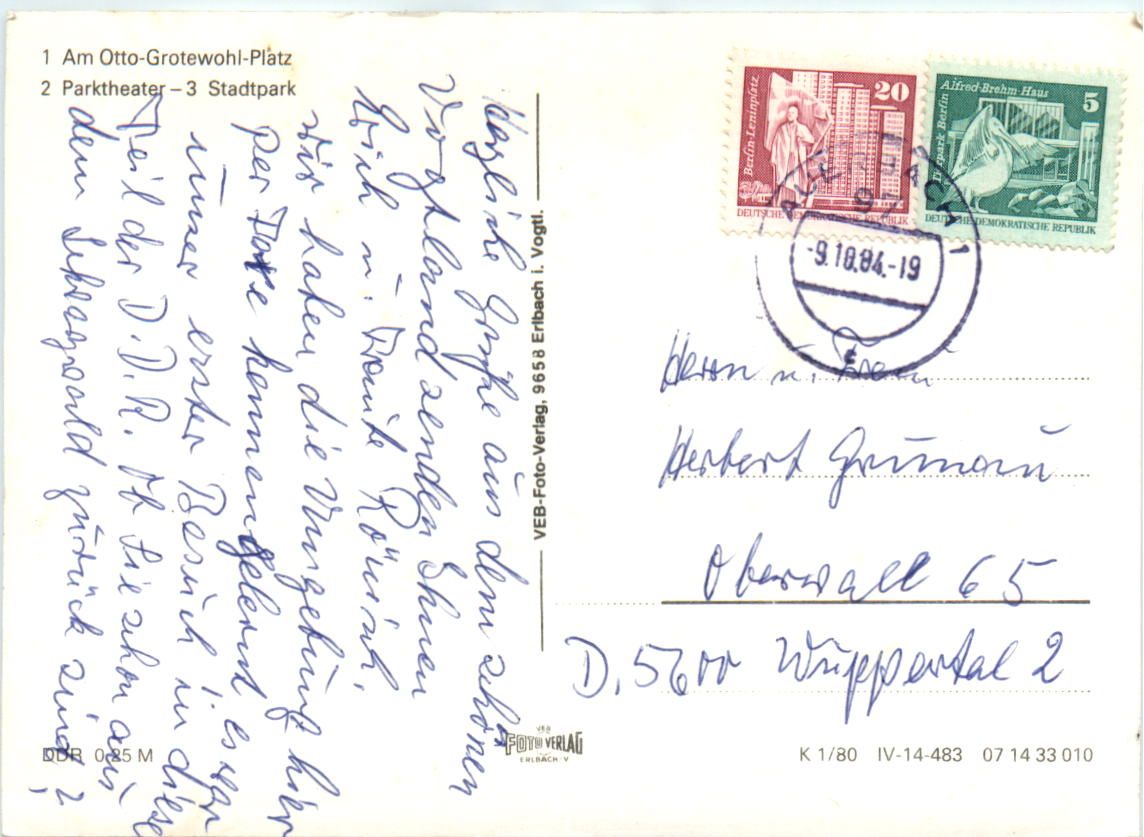 1 Am Otto-Grotewohl-Platz
2 Parktheater – 3 Stadtpark
Herzliche Grüße aus dem schönen
Vogtland senden Ihnen
Erich u. Traute Römisch.
Wir haben die Umgebung hier
per Taxe kennengelernt es war
unser erster Besuch in diesem
Teil der D.D.R. Ob Sie schon aus
dem Schwarzwald zurück sind?
VEB-Foto-Verlag, 9658 Erlbach i. Vogtl.
Berlin-Leninplatz
20
DEUTSCHE DEMOKRATISCHE REPUBLIK
Tierpark Berlin
Alfred-Brehm-Haus
5
DEUTSCHE DEMOKRATISCHE REPUBLIK
-9.10.84.-19
Herrn u. Frau
Herbert Grunau
Oberwall 65
D. 5600 Wuppertal 2
DDR 0,25 M
VEB
FOTO VERLAG
ERLBACH/V
K 1/80 IV-14-483 07 14 33 010